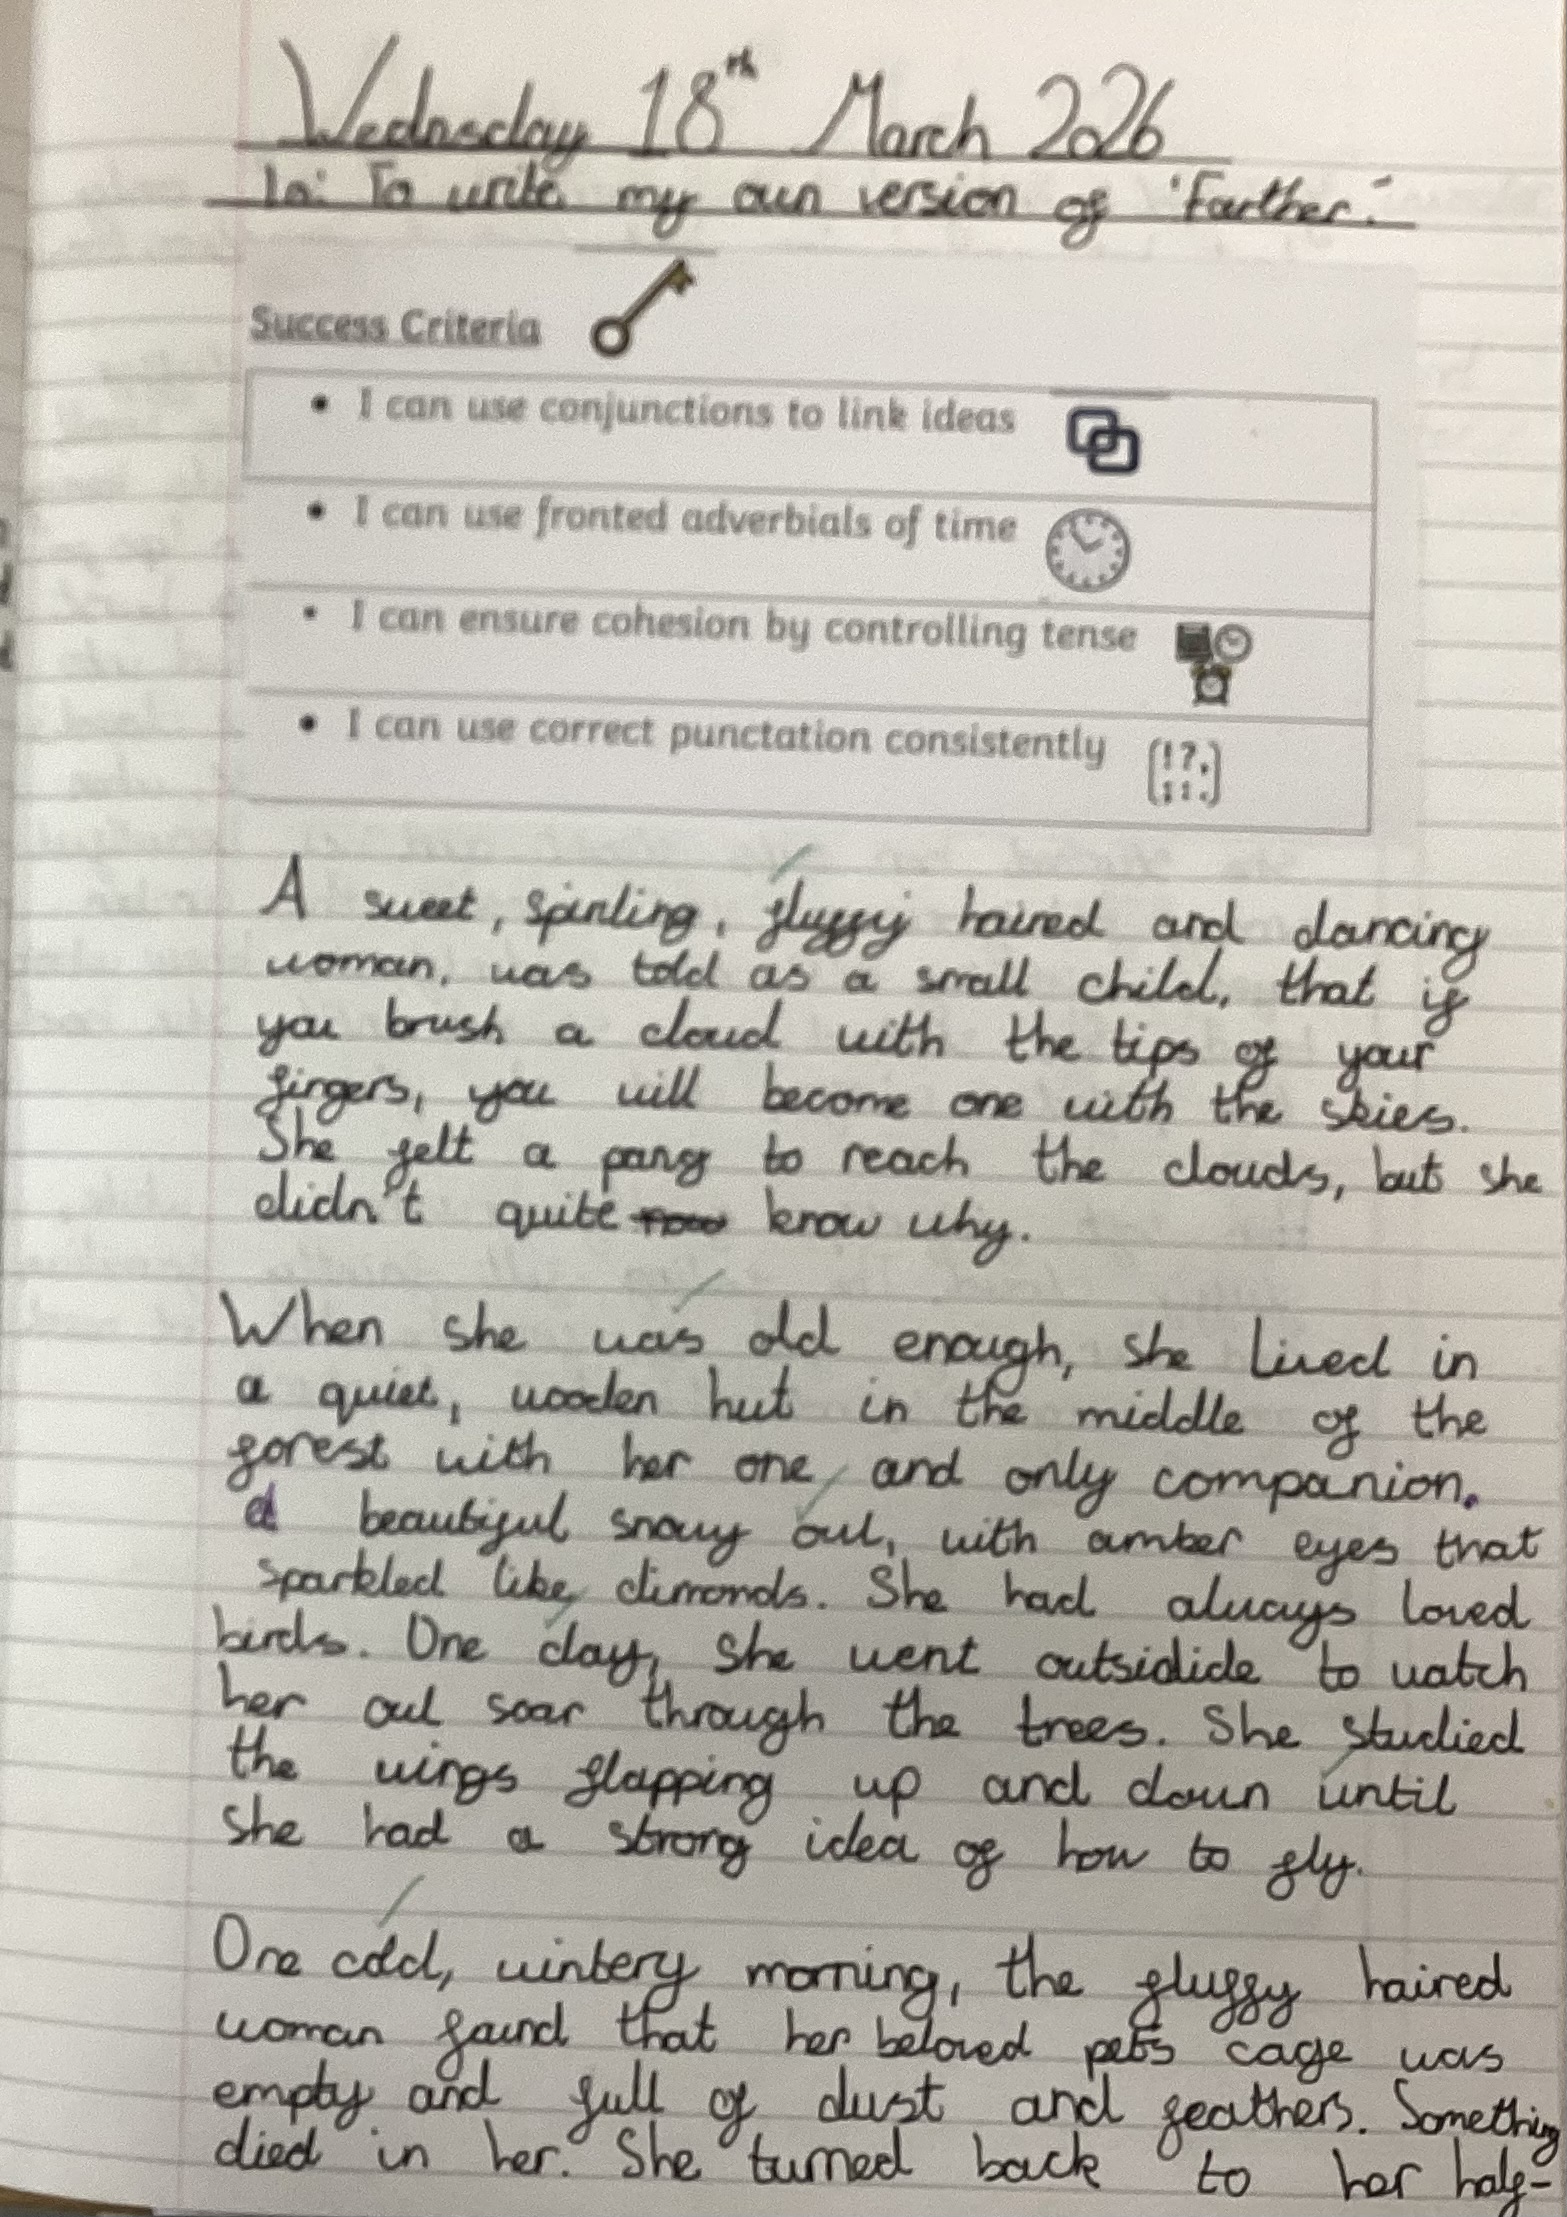 Wednesday 18th March 2026
Lo: To write my own version of 'Farther.'
Success Criteria
• I can use conjunctions to link ideas
• I can use fronted adverbials of time
• I can ensure cohesion by controlling tense
• I can use correct punctation consistently
A sweet, spinling, fluffy haired and dancing
woman, was told as a small child, that if
you brush a cloud with the tips of your
fingers, you will become one with the skies.
She felt a pang to reach the clouds, but she
didn't quite know why.
When she was old enough, she lived in
a quiet, wooden hut in the middle of the
forest with her one and only companion.
A beautiful snowy owl, with amber eyes that
sparkled like dimonds. She had always loved
birds. One day, she went outsidide to watch
her owl soar through the trees. She studied
the wings flapping up and down until
she had a strong idea of how to fly.
One cold, wintery morning, the fluffy haired
woman found that her beloved pets cage was
empty and full of dust and feathers. Something
died in her. She turned back to her half-